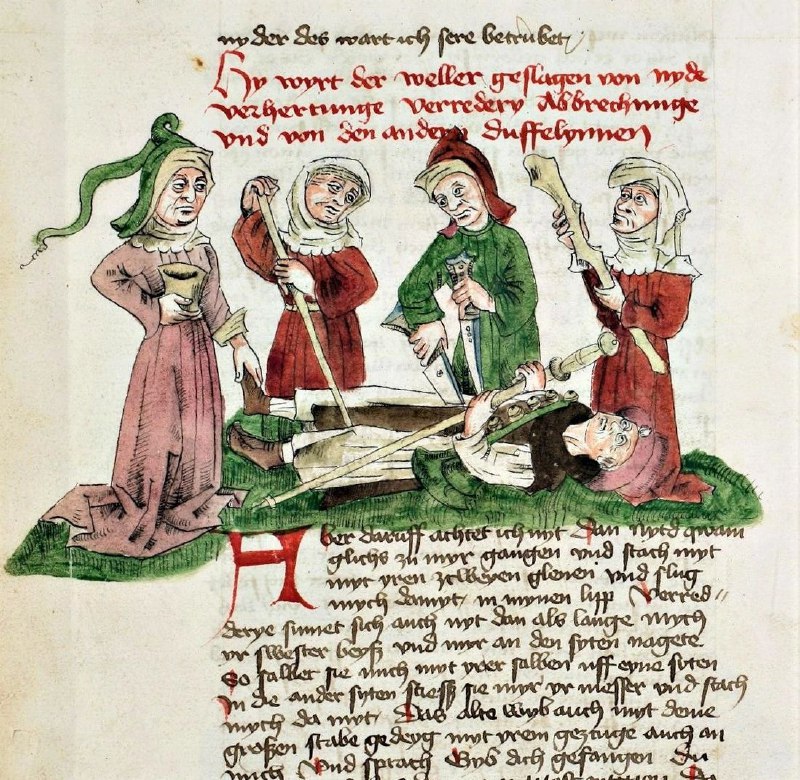 ny der des wart ich sere betrubet
Hy wyrt der weller geslagen von nyde
verhertunge verredery Abbrechunge
vnd von den andern duffelynnen
Aber daruff achtet ich nyt Dan nytd qwam
glichs zu myr gangen vnd stach myt
myt yren zcweyen glenen vnd slug
mych damyt in mynen lipp Verred
derye sumet sich auch nyt dan als lange mych
yr swester beyß vnd myr an den syten nagete
So salbet sie mich myt yrer salben uff eyne syten
In die ander syten stieß sie myr yr messer vnd stach
mych da myt Das alte wyb auch myt deme
großen stabe gedeyg myt yrem gezuge auch an
mich Vnd sprach Gyb dich gefangen Du